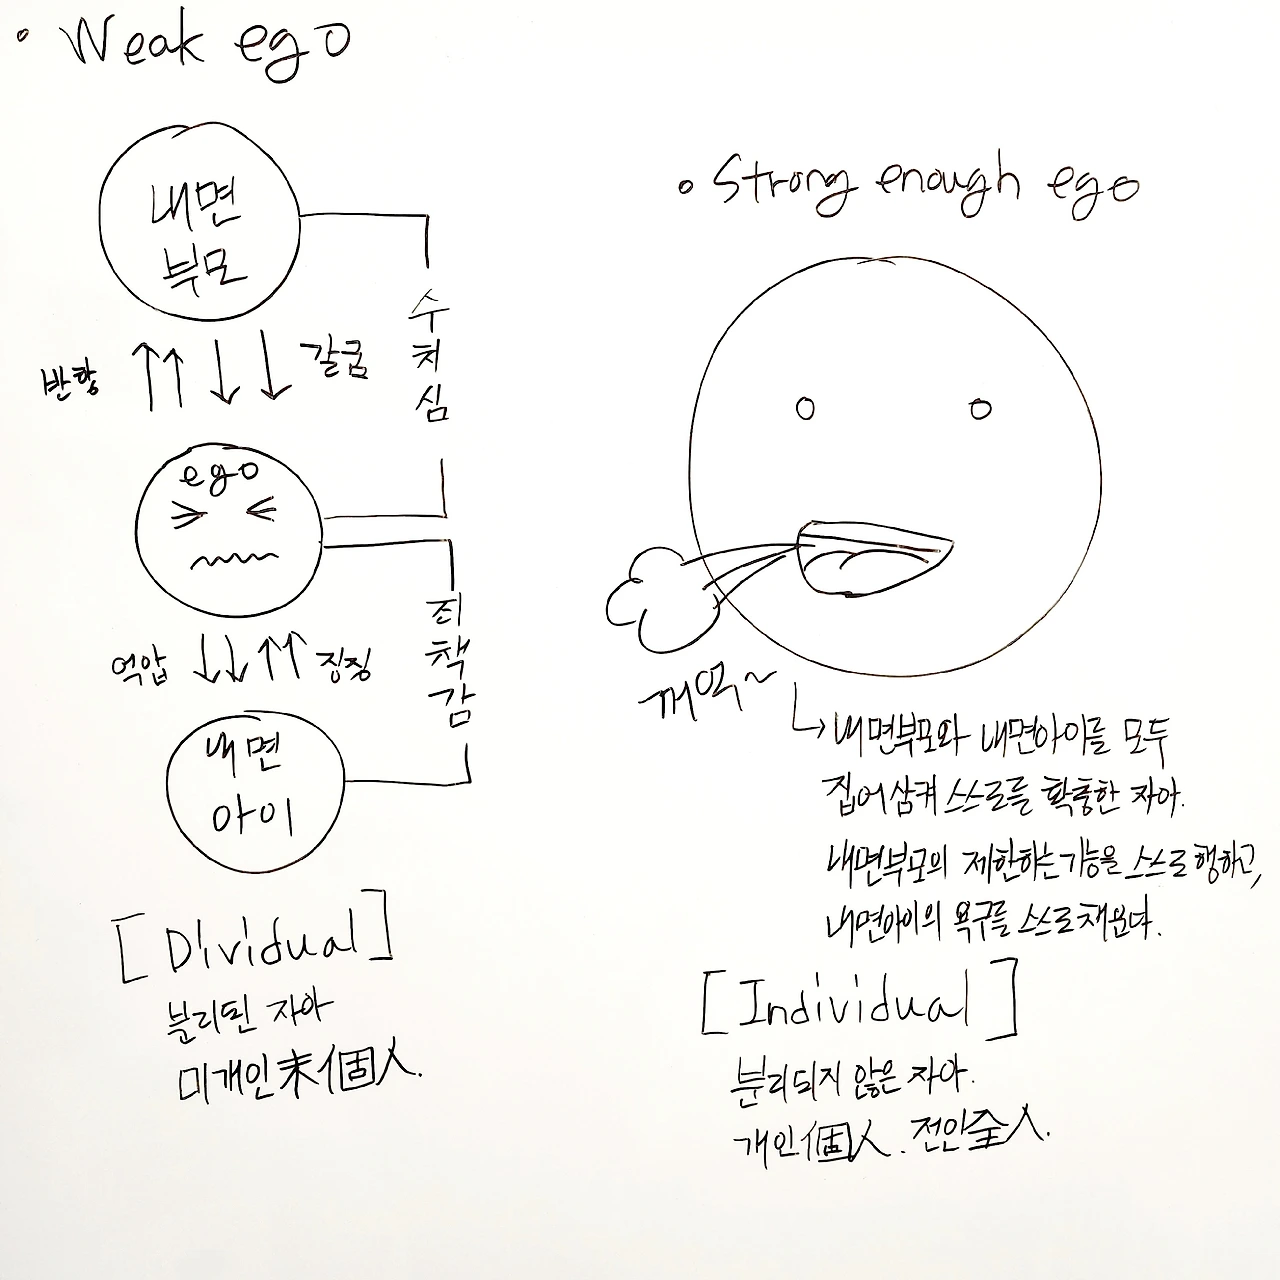 • Weak ego
내면
부모
수치심
반항
갈굼
ego
죄책감
억압
징징
내면
아이
[Dividual]
분리된 자아
미개인 未個人.
• Strong enough ego
꺼억~
↳ 내면부모와 내면아이를 모두
집어삼켜 스스로를 확충한 자아.
내면부모의 제한하는 기능을 스스로 행하고,
내면아이의 욕구를 스스로 채운다.
[Individual]
분리되지 않은 자아.
개인個人. 전인全人.